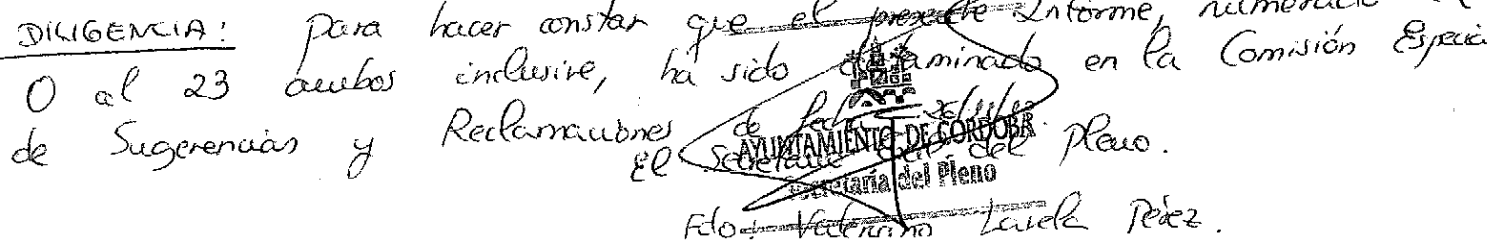 DILIGENCIA: Para hacer constar que el presente Informe, numerado
0 al 23 ambos inclusive, ha sido dictaminado en la Comisión Especia
de Sugerencias y Reclamaciones de fecha
AYUNTAMIENTO DE CORDOBA
El Secretario del Pleno.
Secretaría del Pleno
Fdo: Valeriano Lavela Pérez.